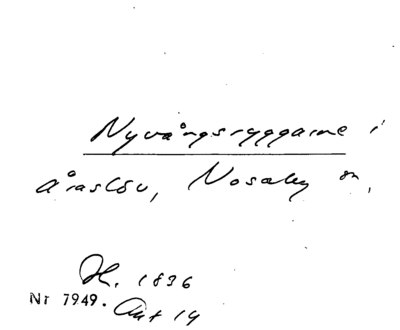 Nyvångsryggarne i
Åraslöv, Nosaby sn,
H. 1836
Nr 7949. Akt 14